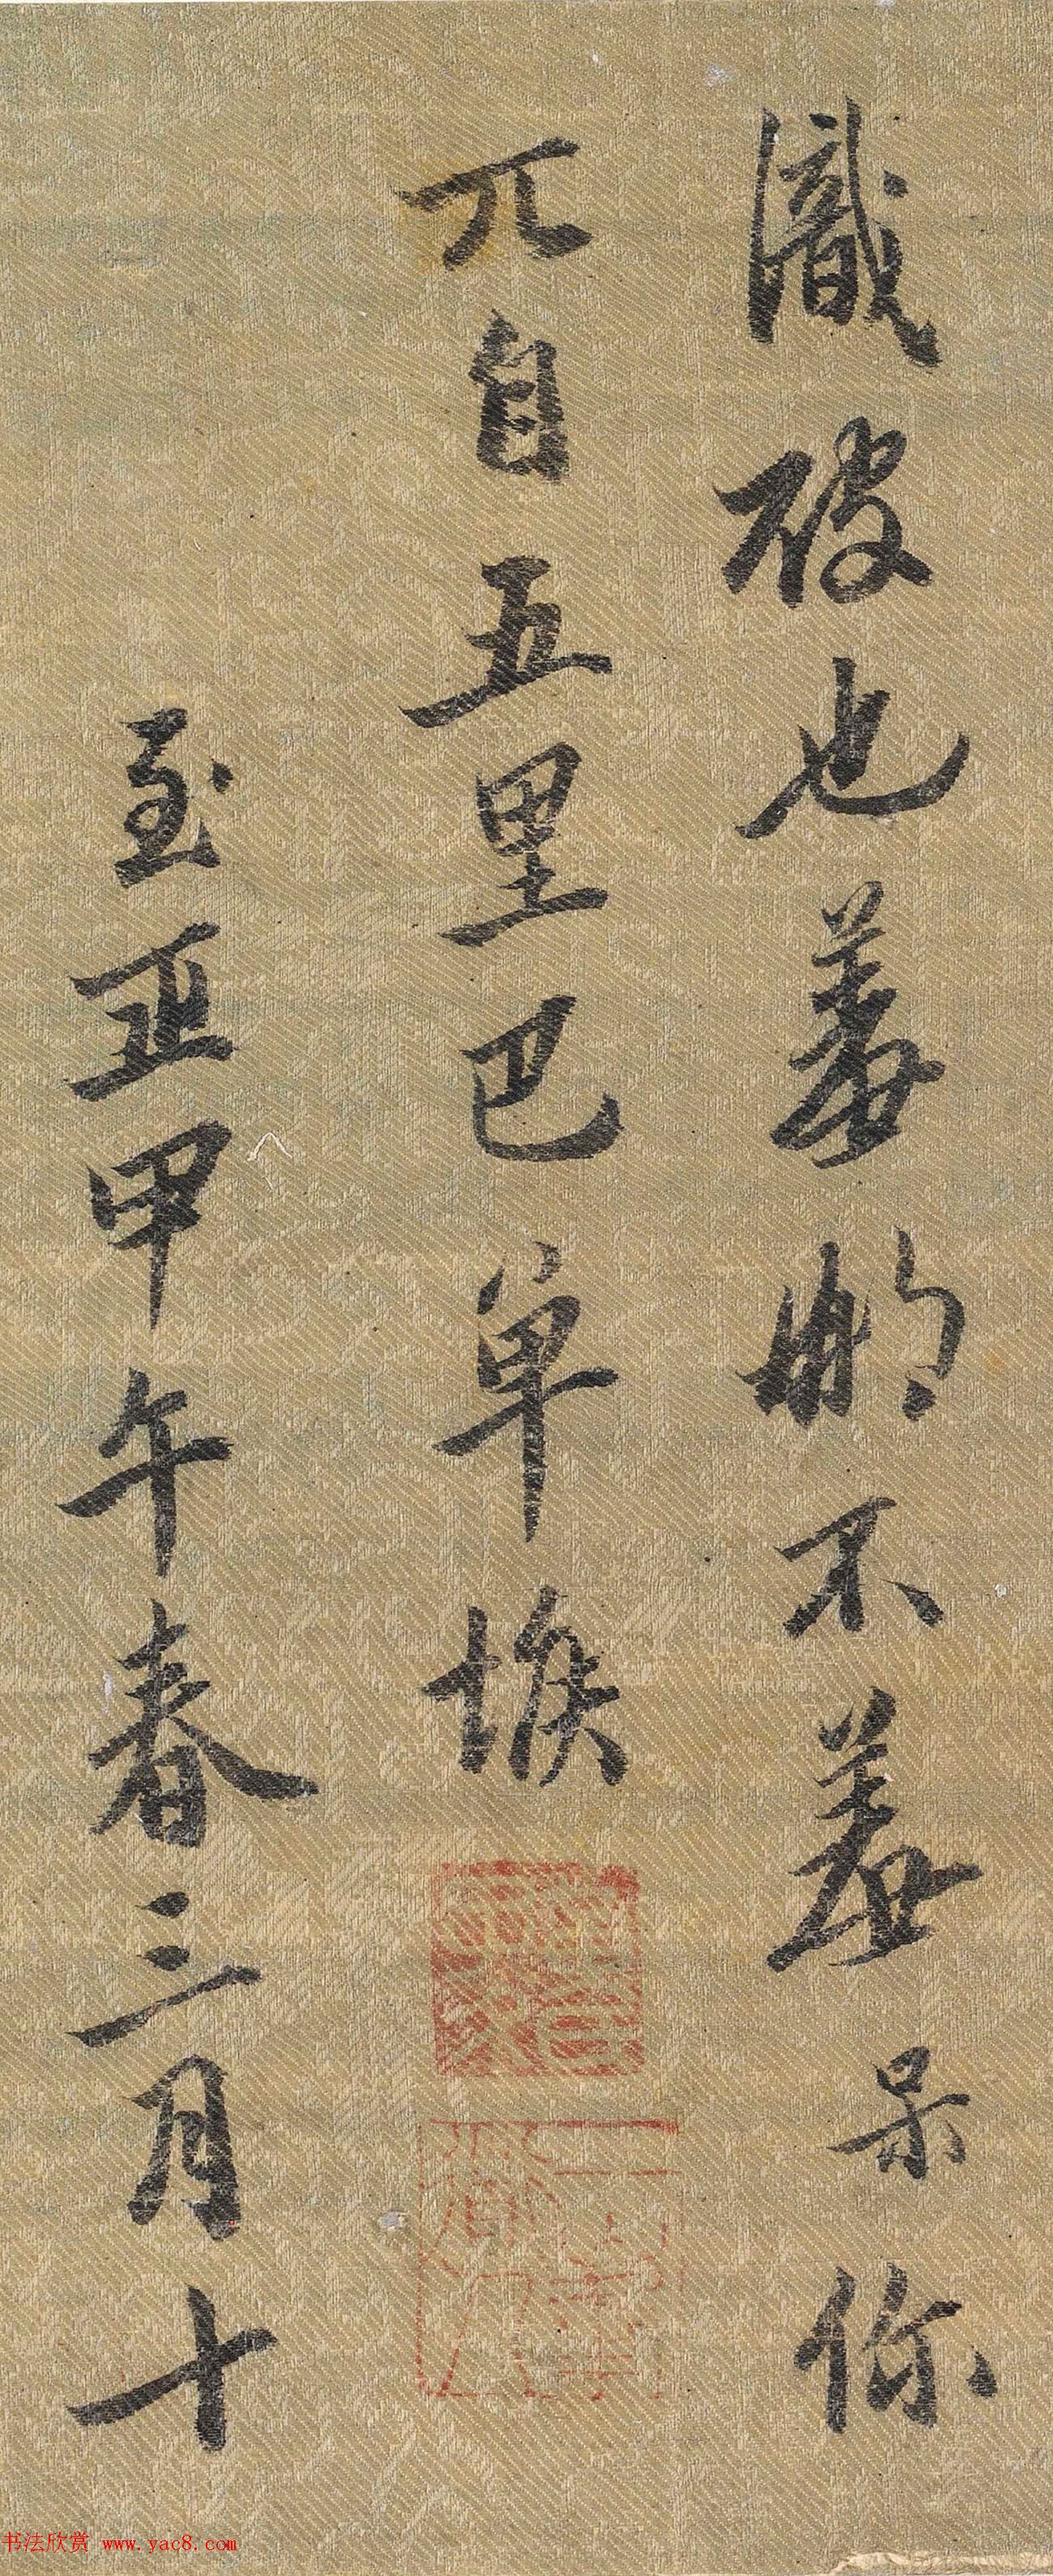 識破也羞那不羞呆你
兀自五里巴单堠
至正甲午春三月十
书法欣赏 www.yac8.com